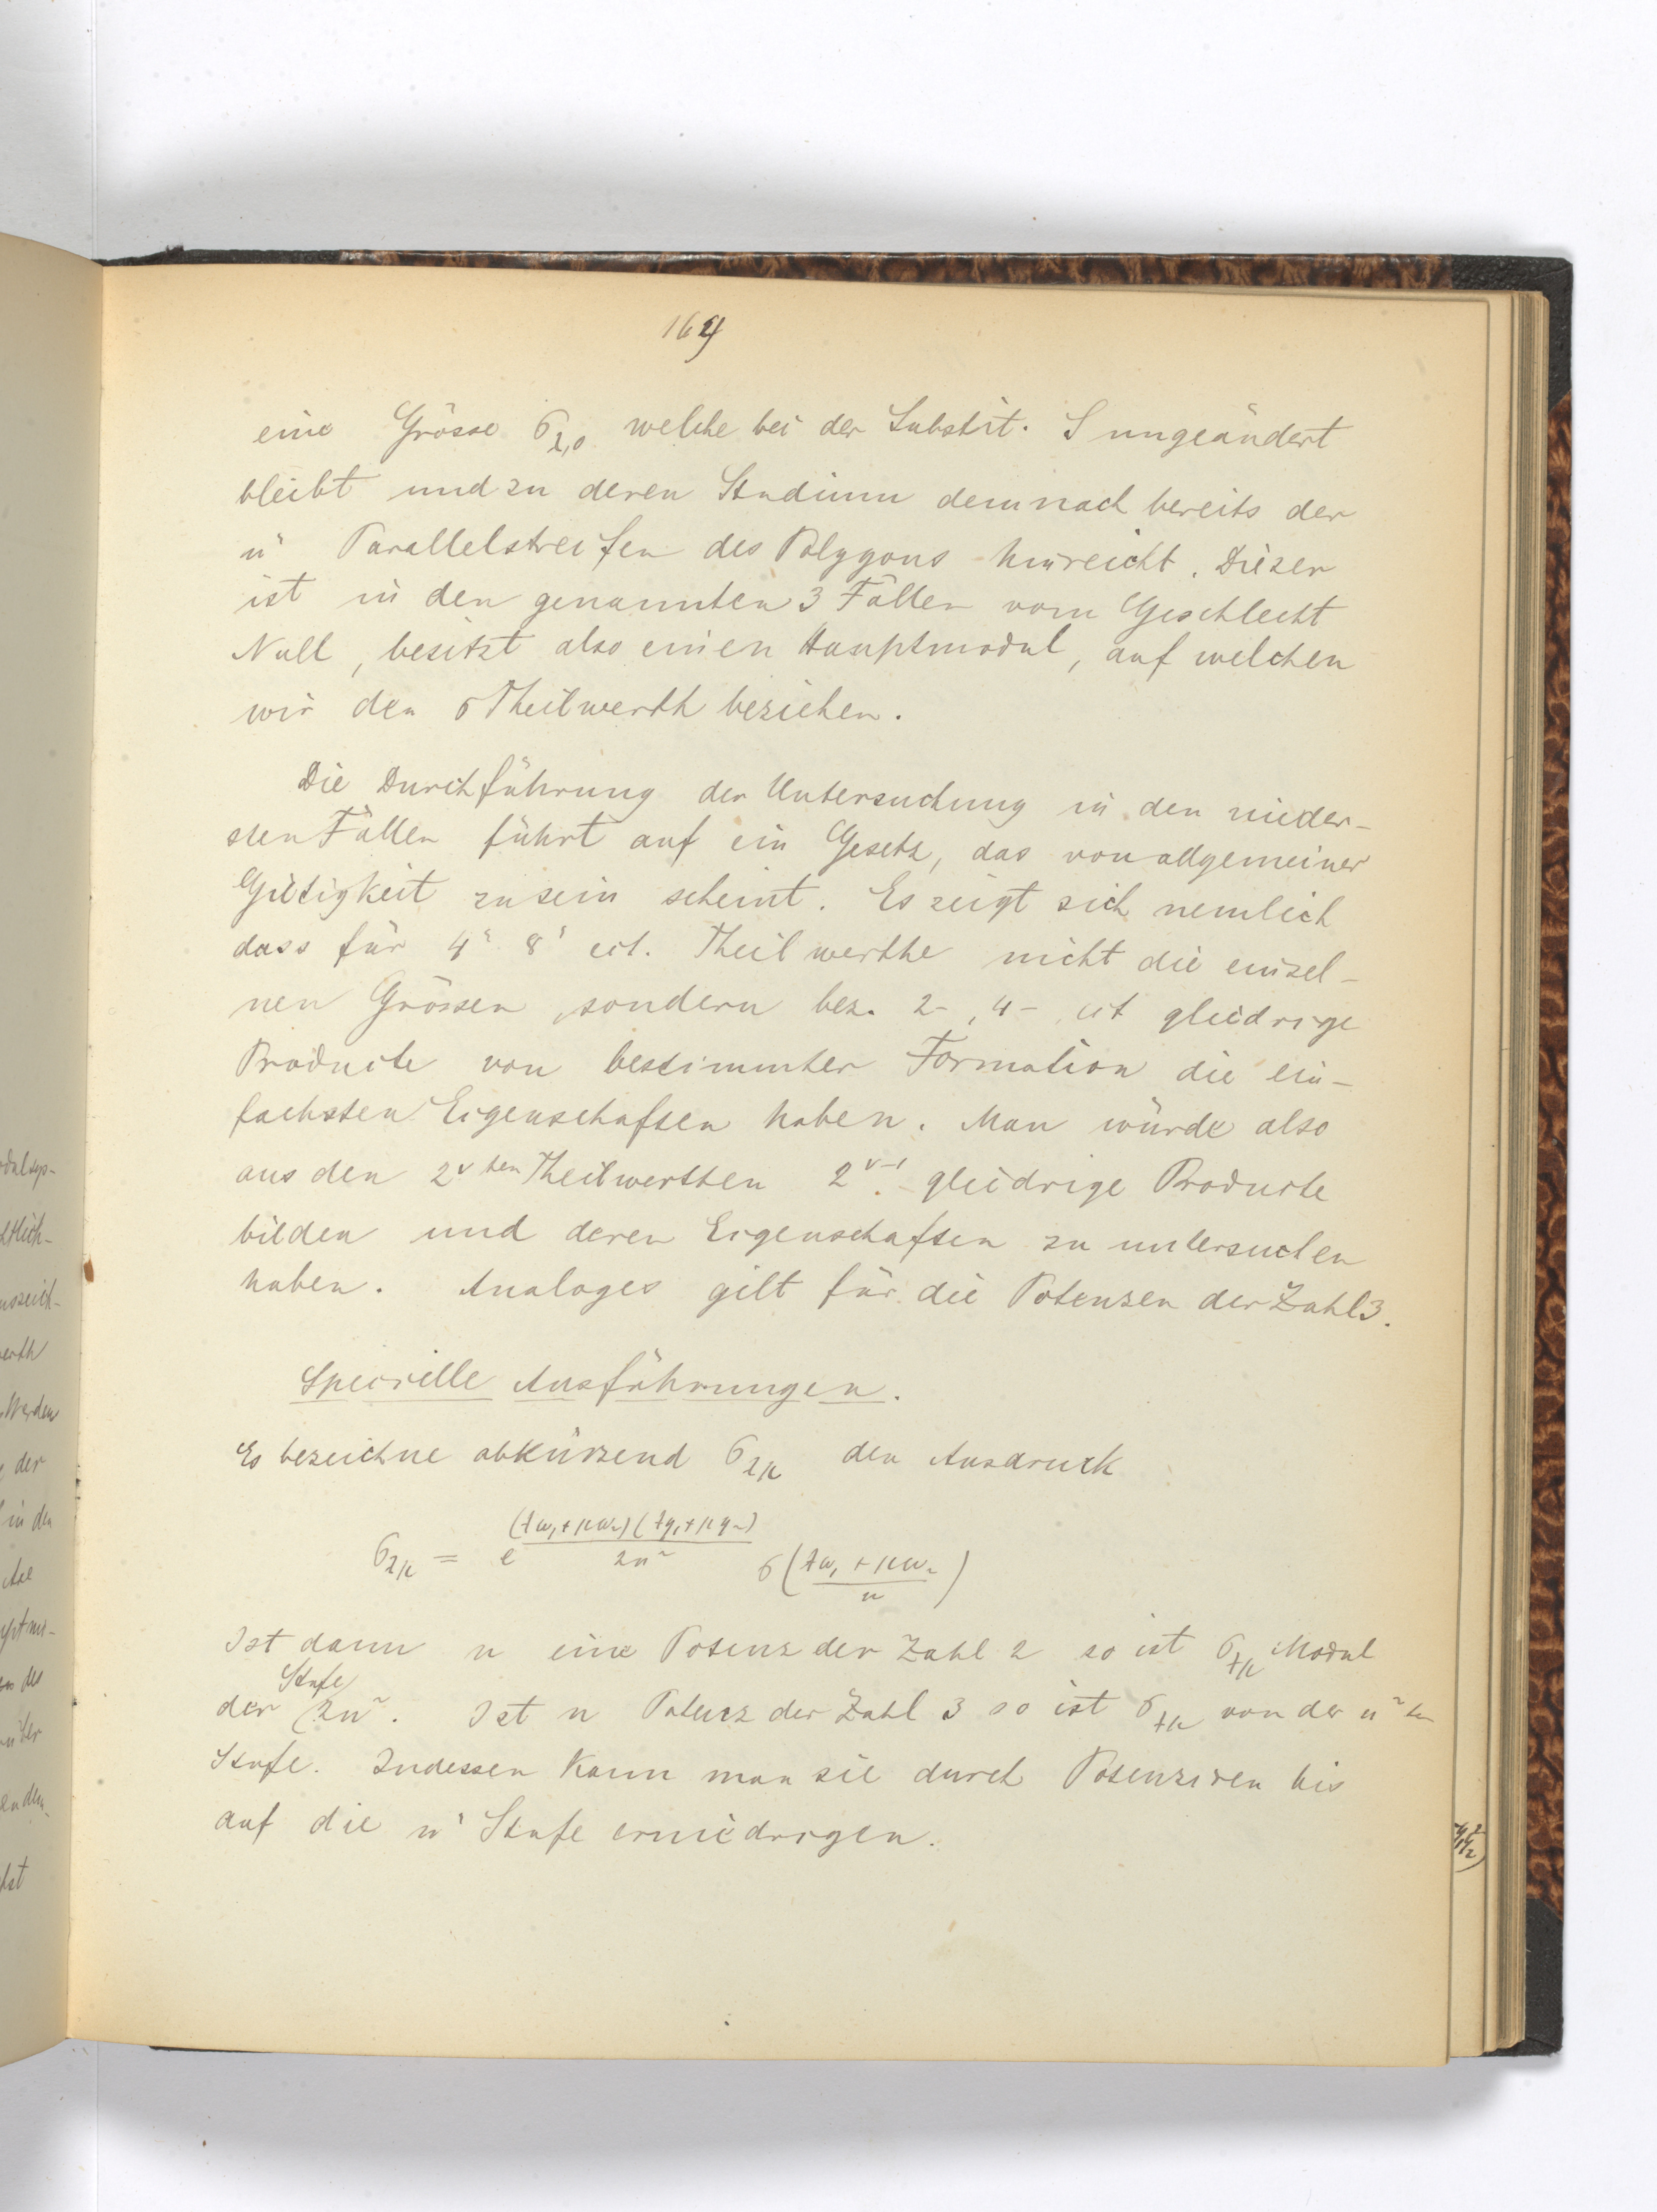 164
eine Grösse σ_{λ,0} welche bei der Substit. S ungeändert
bleibt und zu deren Studium demnach bereits der
n" Parallelstreifen des Polygons hinreicht. Dieser
ist in den genannten 3 Fällen vom Geschlecht
Null, besitzt also einen Hauptmodul, auf welchen
wir den σ Theilwerth beziehen.
Die Durchführung der Untersuchung in den nieder-
sten Fällen führt auf ein Gesetz, das von allgemeiner
Gültigkeit zu sein scheint. Es zeigt sich nemlich
dass für 4" 8" ect. Theilwerthe nicht die einzel-
nen Grössen, sondern bez. 2-, 4- ect gliedrige
Producte von bestimmter Formation die ein-
fachsten Eigenschaften haben. Man würde also
aus den 2^{ν ten} Theilwerthen 2^{ν-1} gliedrige Producte
bilden und deren Eigenschaften zu untersuchen
haben. Analoges gilt für die Potenzen der Zahl 3.
Specielle Ausführungen.
Es bezeichne abkürzend σ_{λμ} den Ausdruck
σ_{λμ} = e^{\frac{(λω_1+μω_2)(λη_1+μη_2)}{2n^2}} σ(\frac{λω_1+μω_2}{n})
Ist dann n eine Potenz der Zahl 2 so ist σ_{λμ} Modul
der Stufe 2n^2. Ist n Potenz der Zahl 3 so ist σ_{λμ} von der n^2 ten
Stufe. Indessen kann man sie durch Potenziren bis
auf die n" Stufe erniedrigen.